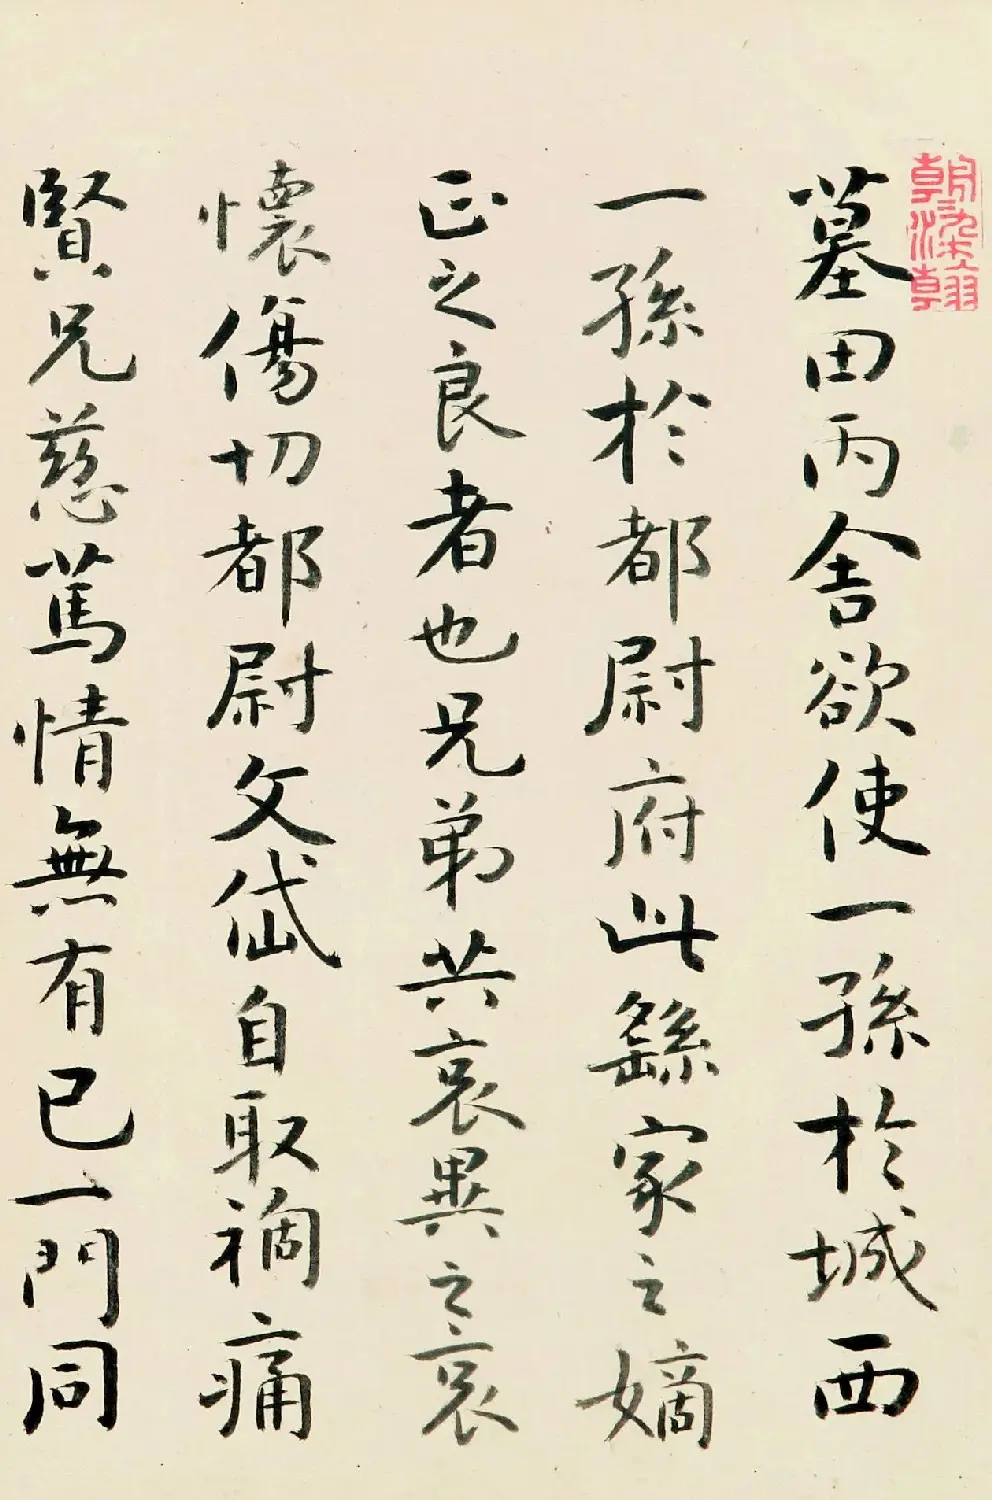 朝〻染翰
墓田丙舍欲使一孫於城西
一孫於都尉府此繇家之嫡
正之良者也兄弟共哀異之哀
懷傷切都尉文岱自取禍痛
賢兄慈篤情無有已一門同